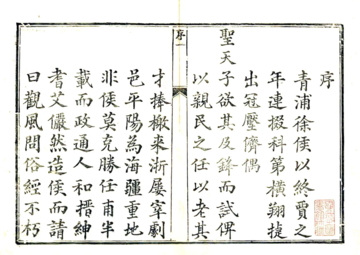 序
青浦徐侯以終賈之
年連掇科第橫翔捷
出冠壓儕偶
聖天子欲其及鋒而試俾
以親民之任以老其
序一
才捧檄來浙屢宰劇
邑平陽為海疆重地
非侯莫克勝任甫半
載而政通人和搢紳
耆艾儼然造侯而請
曰觀風問俗經不朽